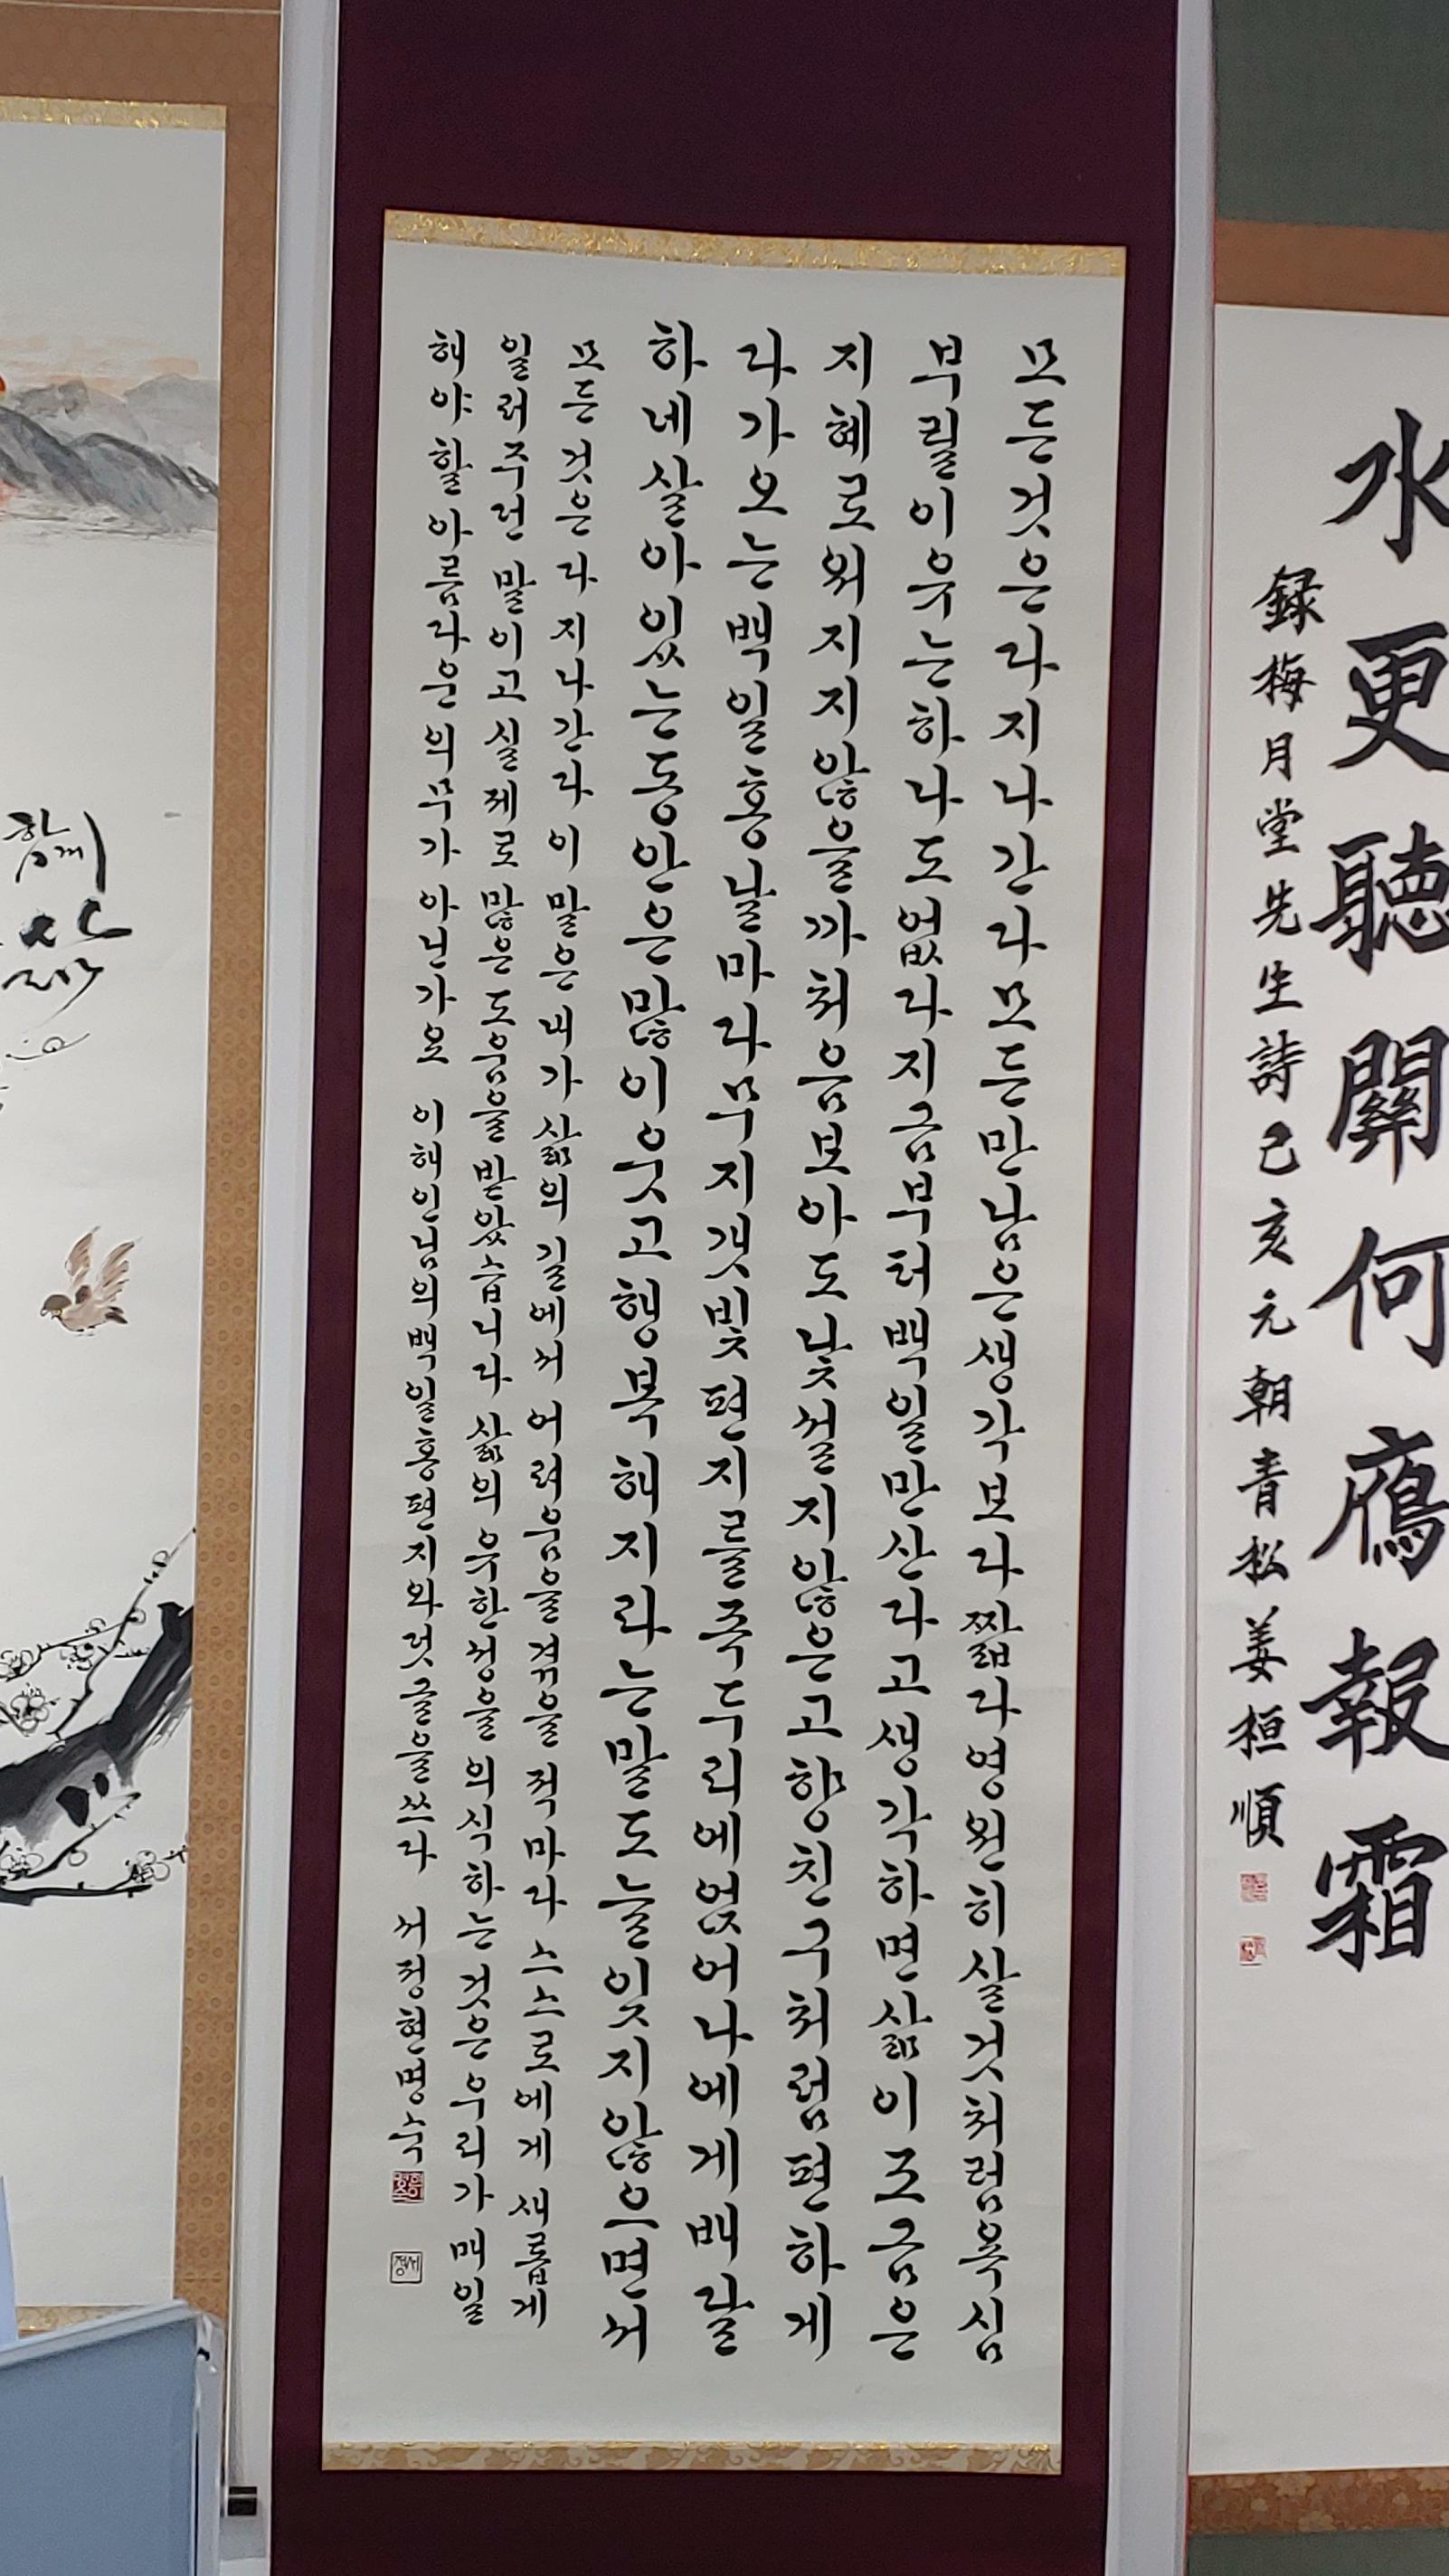 모든것은다지나간다모든만남은생각보다짧다영원히살것처럼욕심
부릴이유는하나도없다지금부터백일만산다고생각하면삶이조금은
지혜로워지지않을까처음보아도낯설지않은고향친구처럼편하게
다가오는백일홍날마다무지갯빛편지를족두리에얹어나에게배달
하네살아있는동안은많이웃고행복해지라는말도늘잊지않으면서
모든것은다지나간다 이말은내가삶의길에서 어려움을겪을적마다 스스로에게 새롭게
일러주던 말이고 실제로 많은 도움을 받았습니다 삶의유한성을 의식하는 것은우리가 매일
해야할아름다운의무가 아닌가요 이해인님의백일홍편지와덧글을쓰다 서정현명숙
서정
水更聽關何鴈報霜
録梅月堂先生詩己亥元朝青松姜桓順
함께